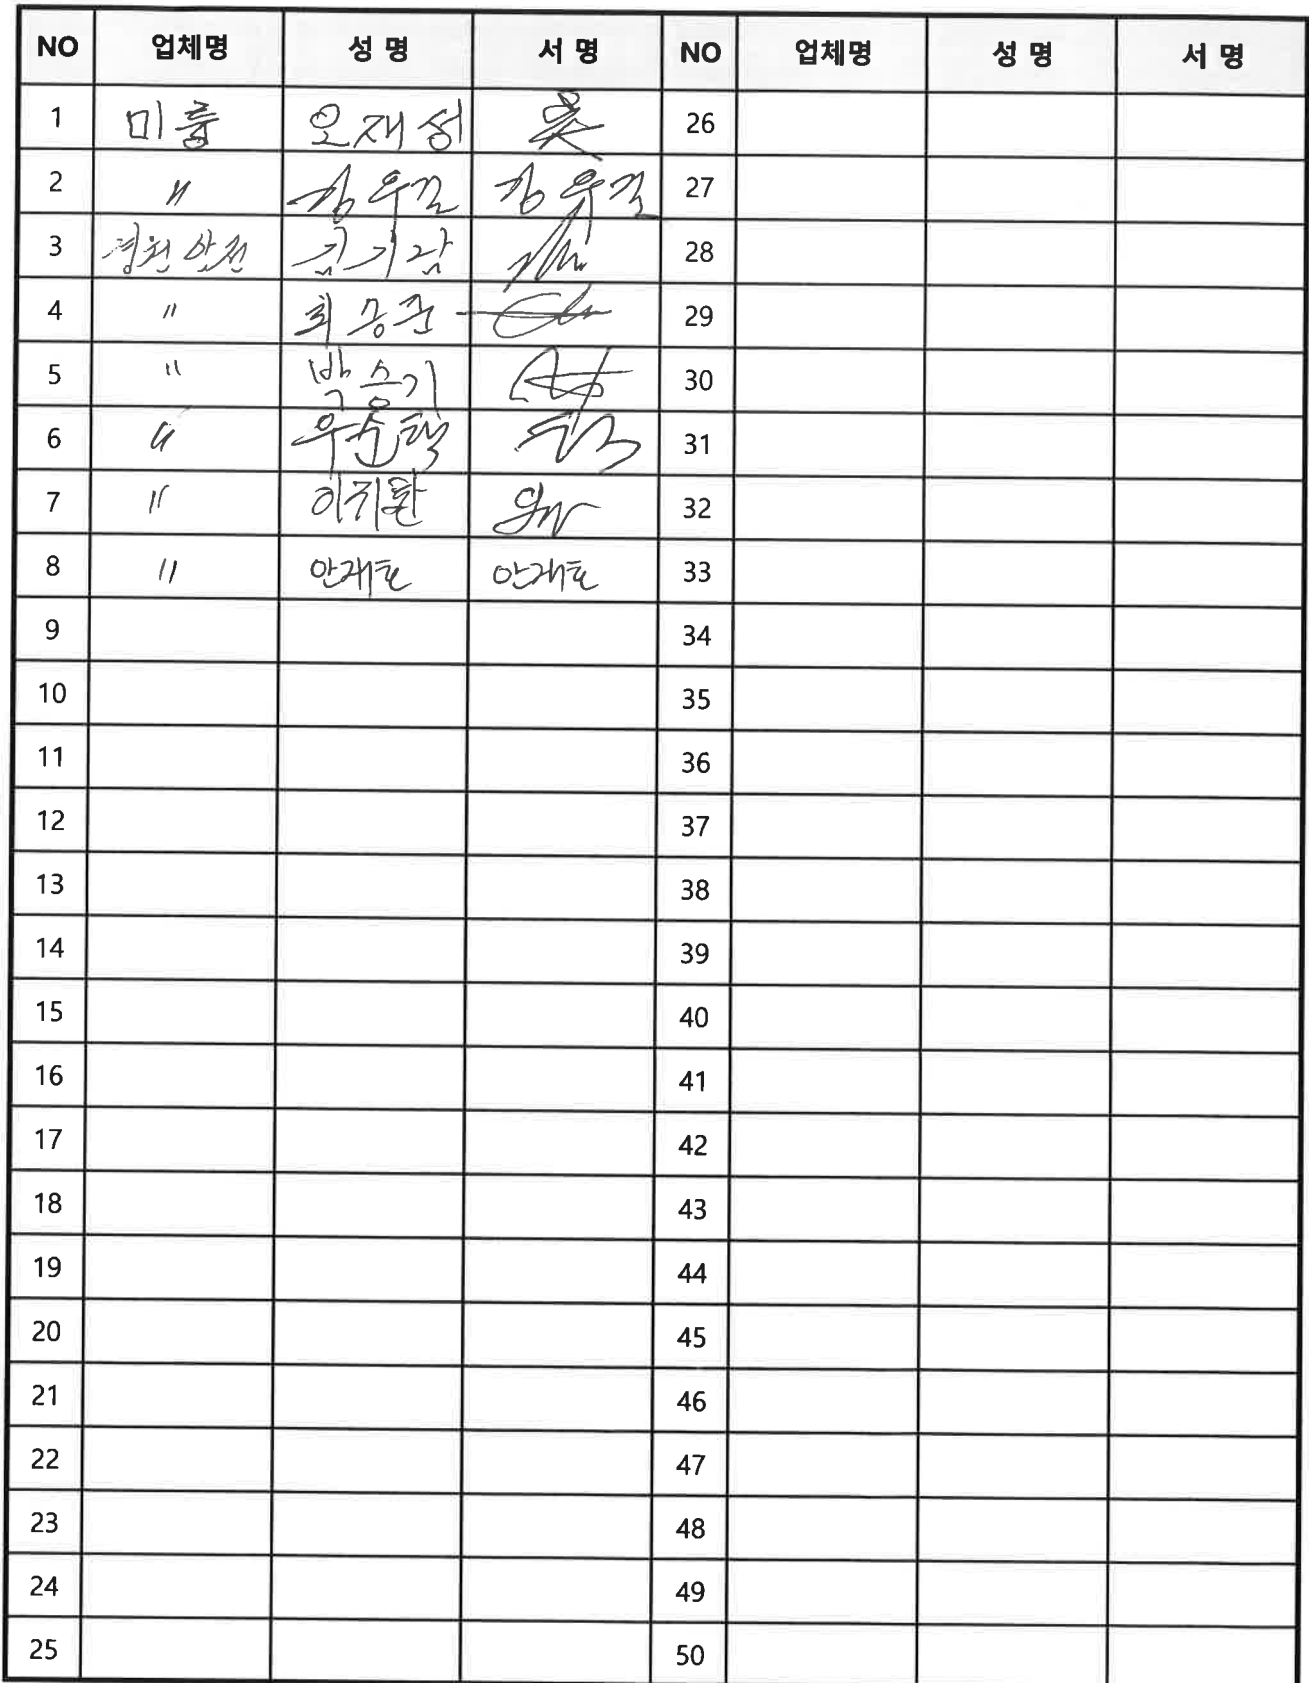 NO 업체명 성 명 서 명 NO 업체명 성 명 서 명
1 미륭 오재성 26
2 〃 27
3 경원안전 김기남 28
4 〃 최승준 29
5 〃 박승기 30
6 〃 우순택 31
7 〃 이귀환 32
8 〃 안재호 안재호 33
9 34
10 35
11 36
12 37
13 38
14 39
15 40
16 41
17 42
18 43
19 44
20 45
21 46
22 47
23 48
24 49
25 50